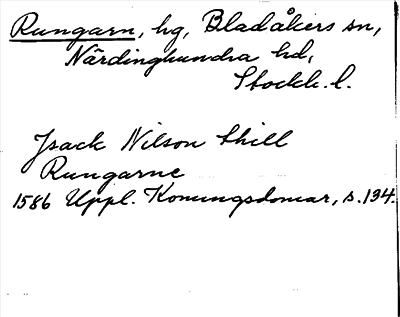 Rungarn, hg, Bladåkers sn,
Närdinghundra hd,
Stockh. l.
Jsack Nilson thill
Rungarne
1586 Uppl. Konungsdomar, s. 134.